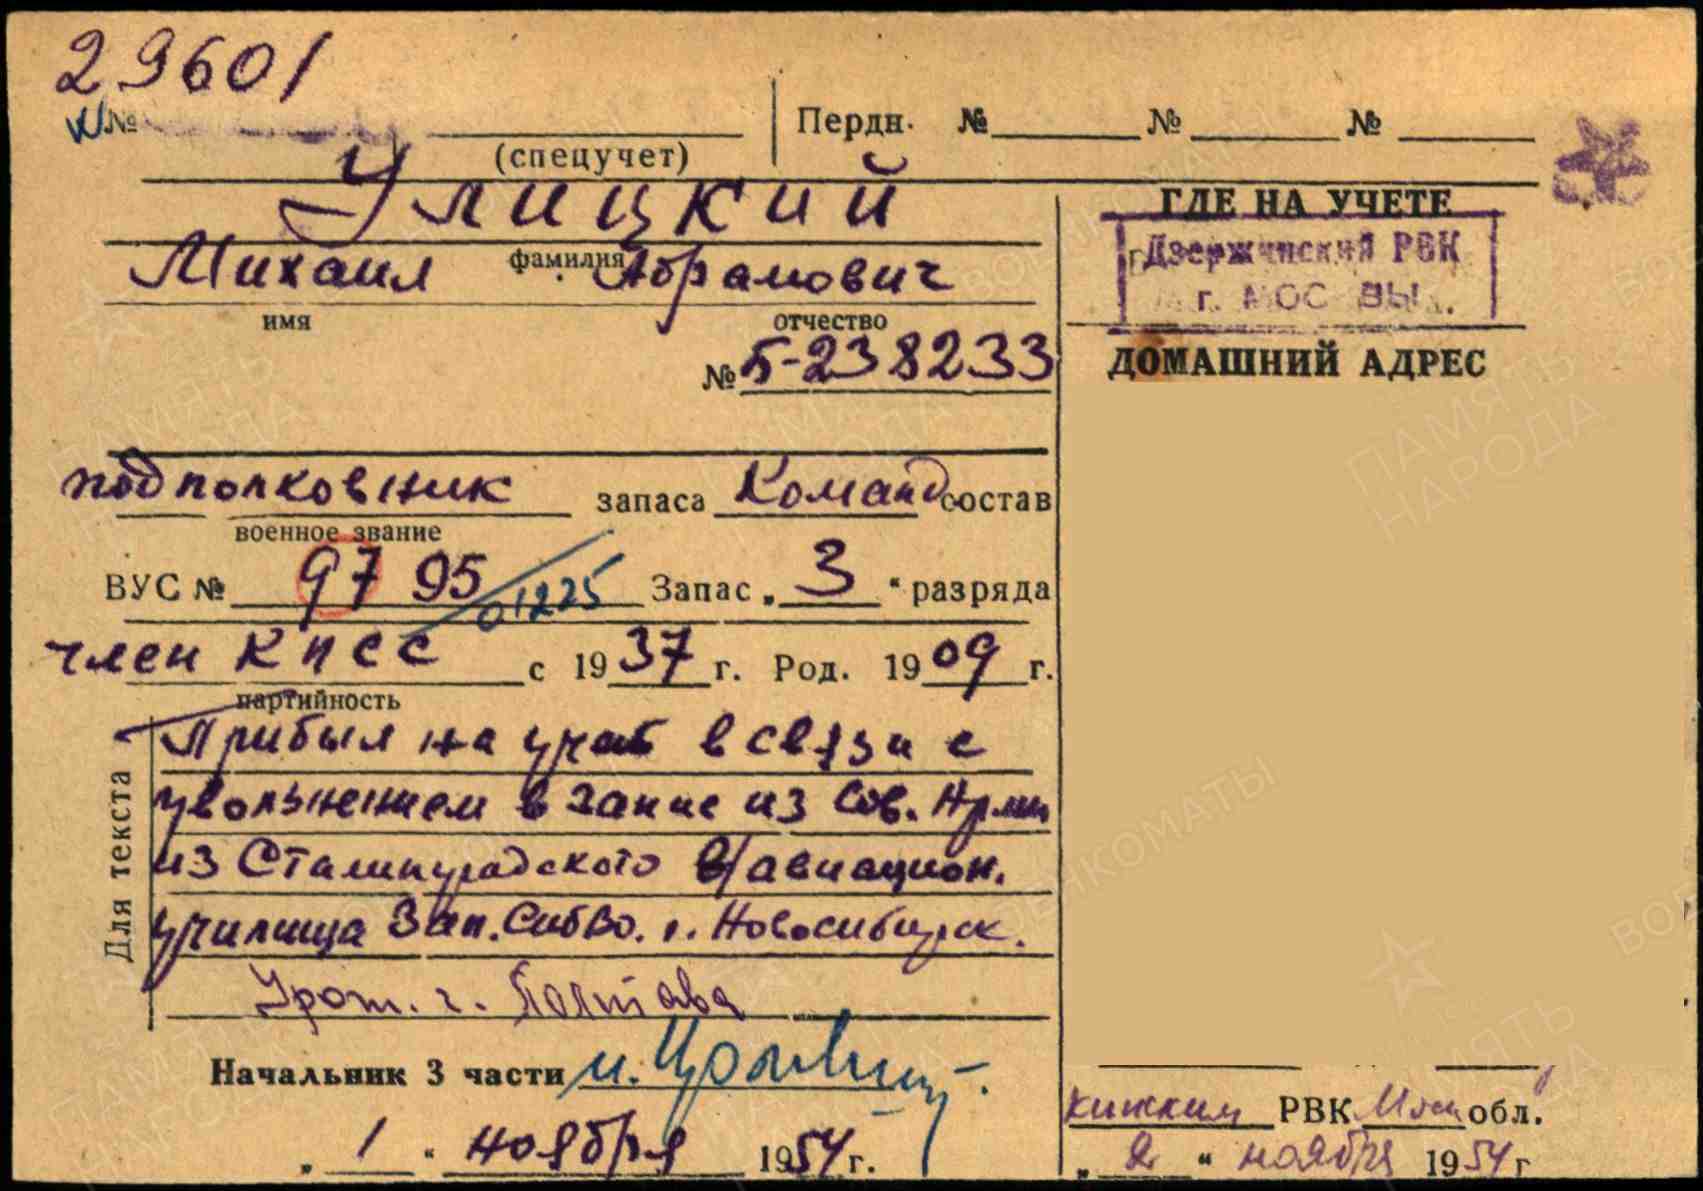 29601
№
(спецучет)
Пердн. № № №
Улицкий
фамилия
Михаил Абрамович
имя отчество
№ Б-238233
подполковник запаса Команд состав
военное звание
ВУС № 97 95 01225 Запас „ 3 “ разряда
член КПСС с 1937 г. Род. 1909 г.
партийность
Для текста
Прибыл на учет в связи с
увольнением в запас из Сов. Армии
из Сталинградского в/авиацион.
училища Зап. СибВО. г. Новосибирск.
Урож. г. Полтава
Начальник 3 части
„ 1 “ ноября 1954 г.
ГДЕ НА УЧЕТЕ
Дзержинский РВК
г. МОСКВЫ.
ДОМАШНИЙ АДРЕС
РВК Моск обл.
„ 2 “ ноября 1954 г
ПАМЯТЬ НАРОДА
ВОЕНКОМАТЫ